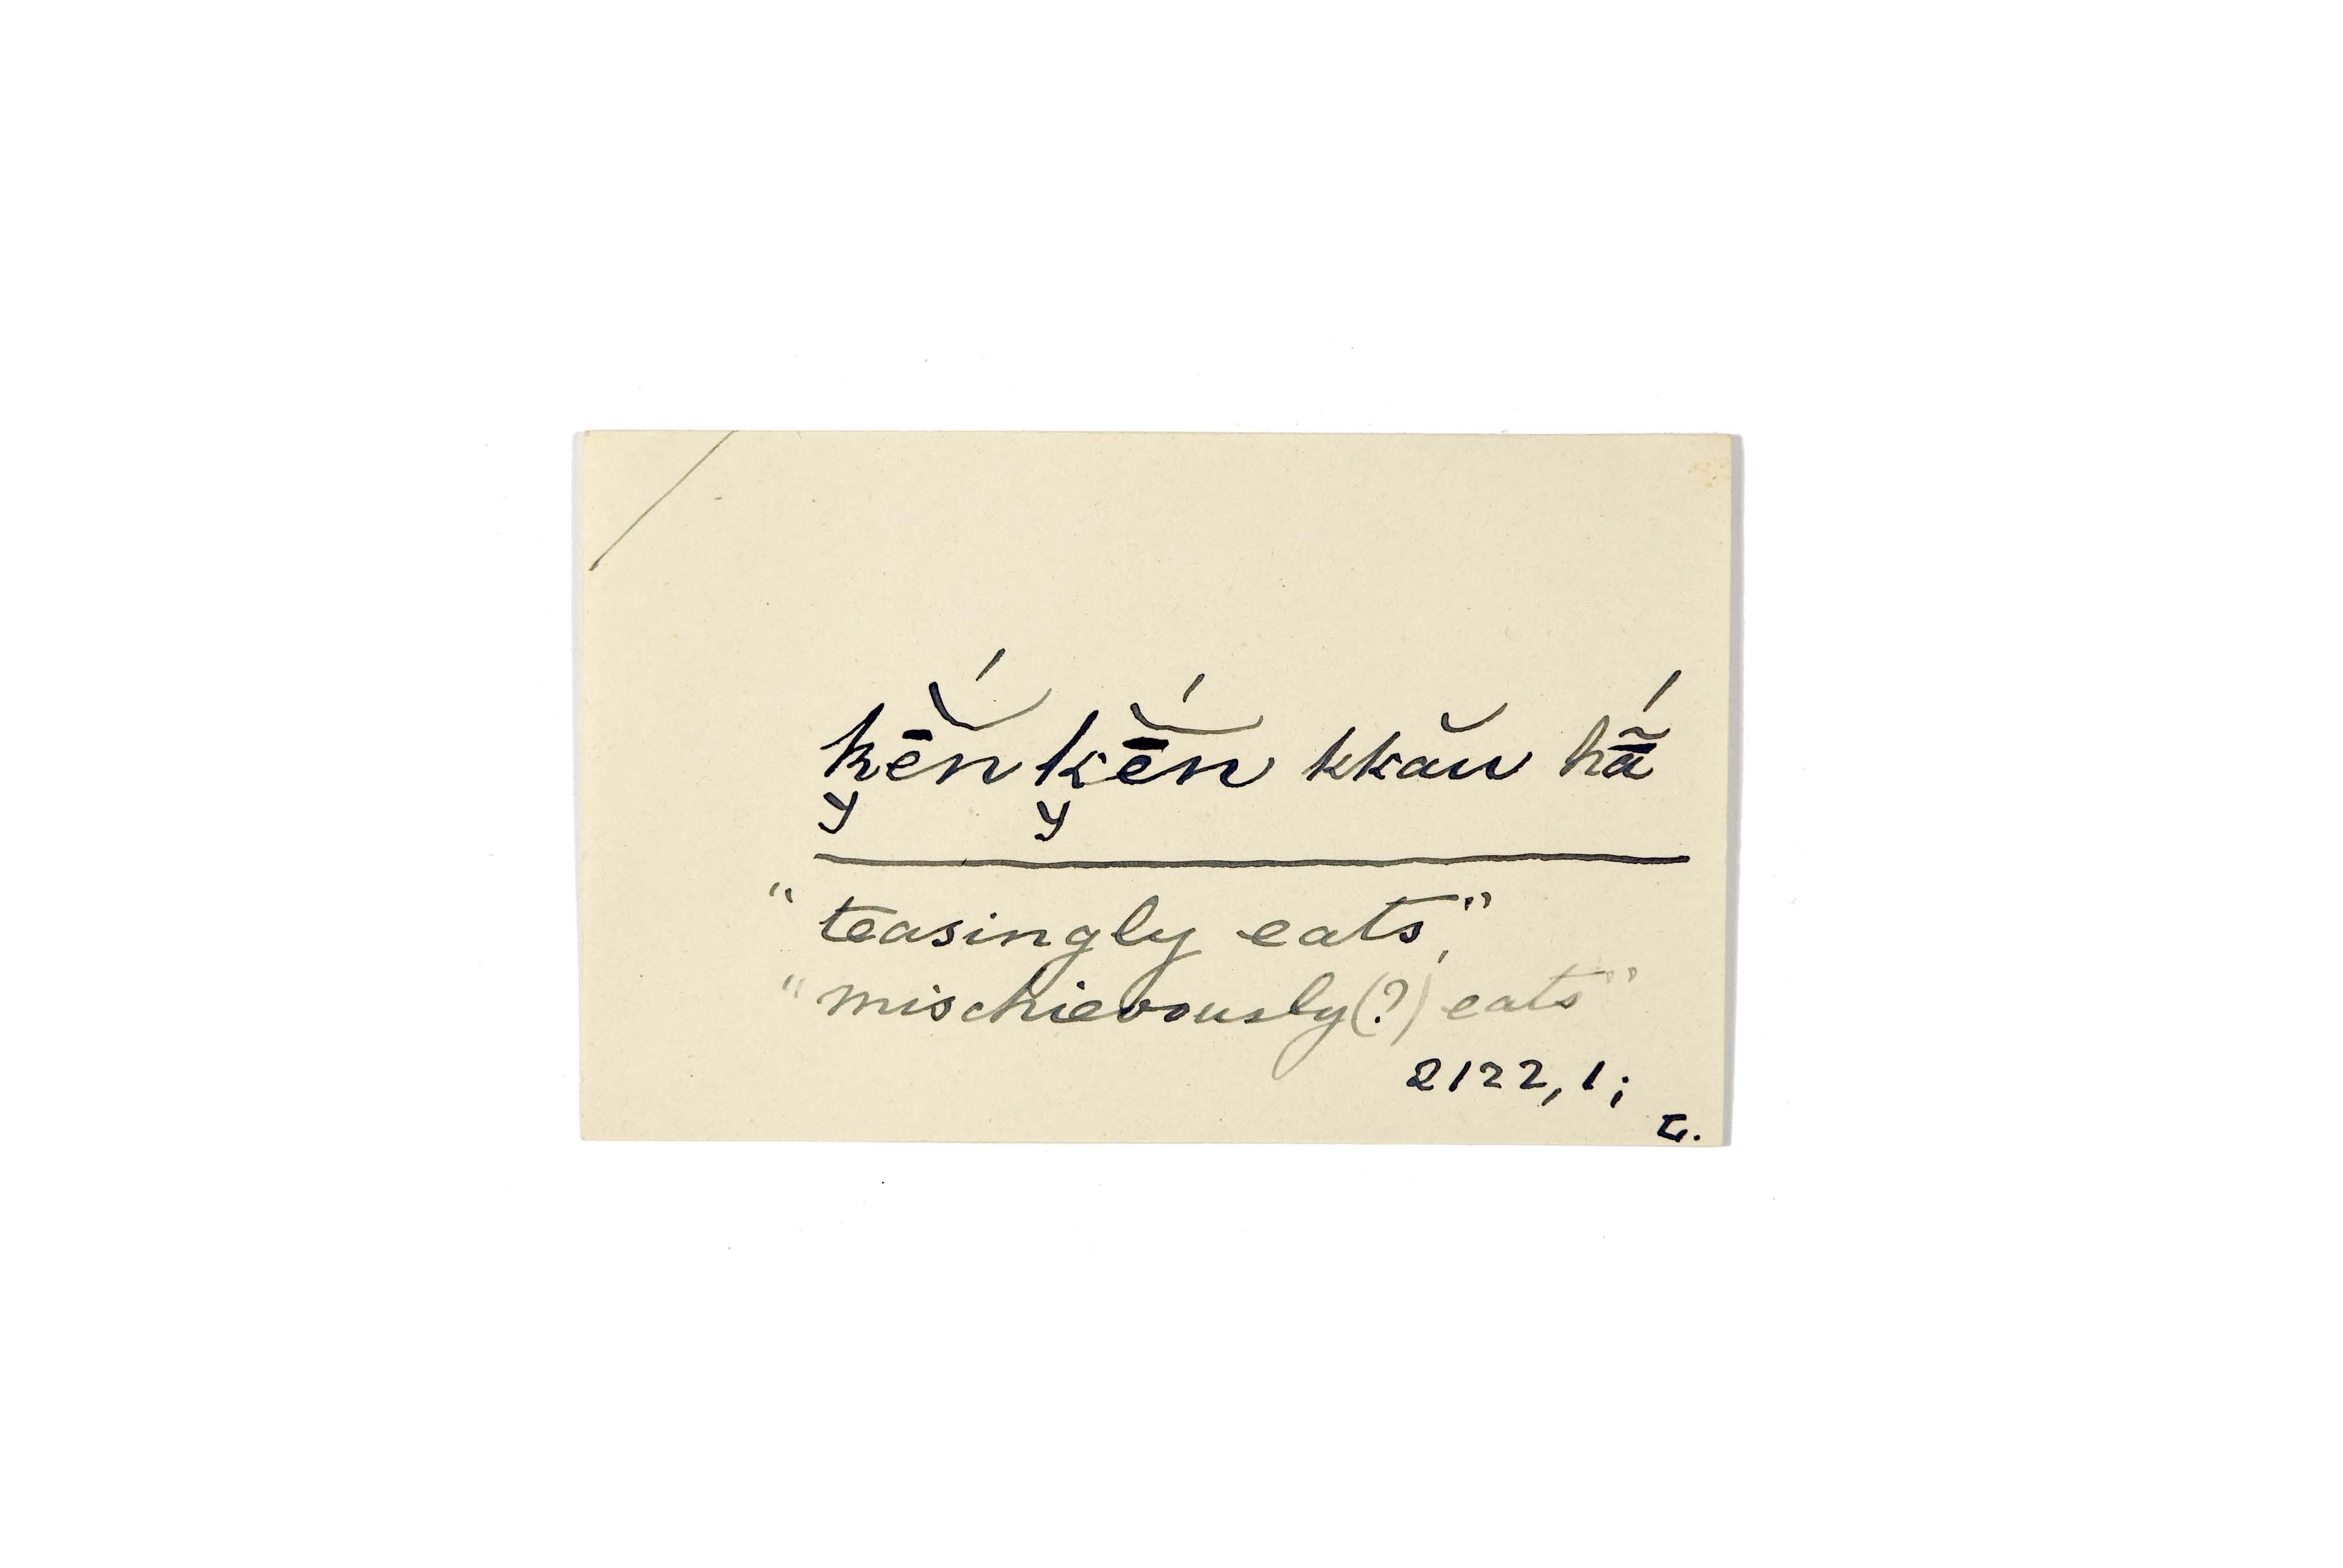 k̯ē̆́n k̯ē̆́n kkău hã̄́
"teasingly eats",
"mischievously(?) eats"
2122, 1;